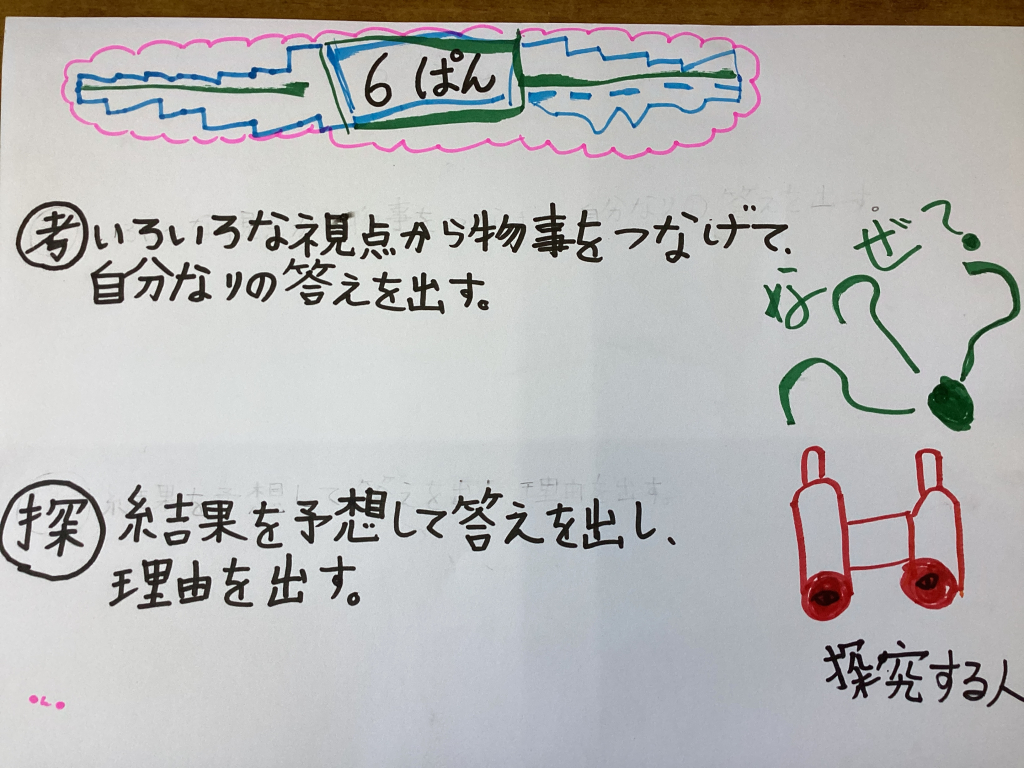 6ぱん
考 いろいろな視点から物事をつなげて、
自分なりの答えを出す。
なぜ?
探 結果を予想して答えを出し、
理由を出す。
探究する人